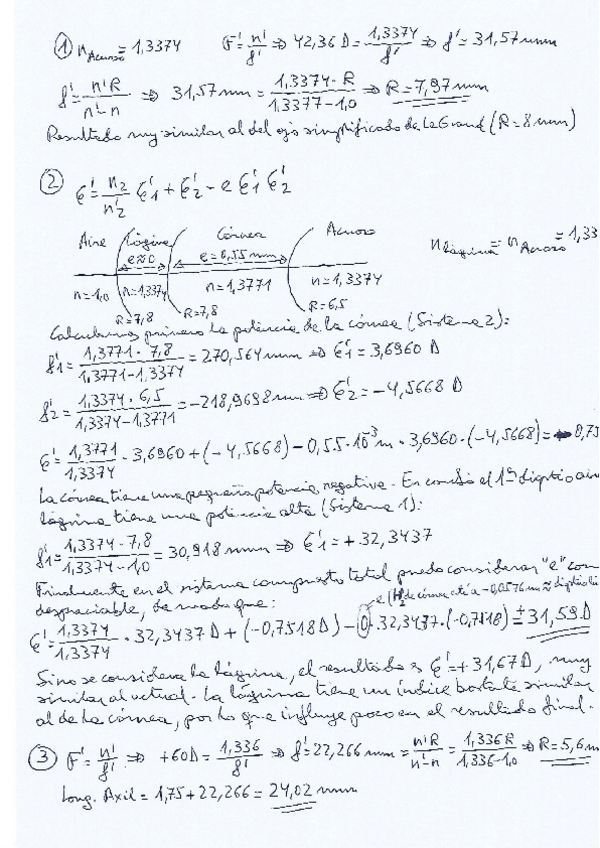 ① n Acuoso = 1,3374 F' = n'/f' ⇒ 42,36 D = 1,3374/f' ⇒ f' = 31,57 mm
f' = n'R/n'-n ⇒ 31,57 mm = 1,3374·R/1,3377-1,0 ⇒ R = 7,97 mm
Resultado muy similar al del ojo simplificado de Le Grand (R = 8 mm)
② E' = n2/n'2 E'1 + E'2 - e E'1 E'2
Aire Lágrima Córnea Acuoso n Lágrima = n Acuoso = 1,33
e≈0 e = 0,55 mm
n=1,0 n=1,3374 n=1,3771 n=1,3374
R=7,8 R=7,8 R=6,5
Calculamos primero la potencia de la córnea (Sistema 2):
f'1 = 1,3771·7,8/1,3771-1,3374 = 270,564 mm ⇒ E'1 = 3,6960 D
f'2 = 1,3374·6,5/1,3374-1,3771 = -218,9698 mm ⇒ E'2 = -4,5668 D
E' = 1,3771/1,3374 · 3,6960 + (-4,5668) - 0,55·10⁻³ m · 3,6960·(-4,5668) = -0,75
La córnea tiene una pequeña potencia negativa. En el 1er dioptrio
lágrima tiene una potencia alta (Sistema 1):
f'1 = 1,3374·7,8/1,3374-1,0 = 30,918 mm ⇒ E'1 = +32,3437
Finalmente en el sistema compuesto total puedo considerar "e" com
despreciable, de modo que: e, (H de córnea está a -0,0576 mm ≈
E' = 1,3374/1,3374 · 32,3437 D + (-0,7518 D) - 0·32,3437·(-0,7518) = +31,59 D
Si no se considera la lágrima, el resultado es E' = +31,67 D, muy
similar al actual. La lágrima tiene un índice bastante similar
al de la córnea, por lo que influye poco en el resultado final.
③ F' = n'/f' ⇒ +60 D = 1,336/f' ⇒ f' = 22,266 mm = n'R/n'-n = 1,336 R/1,336-1,0 ⇒ R = 5,6 m
Long. Axil = 1,75 + 22,266 = 24,02 mm